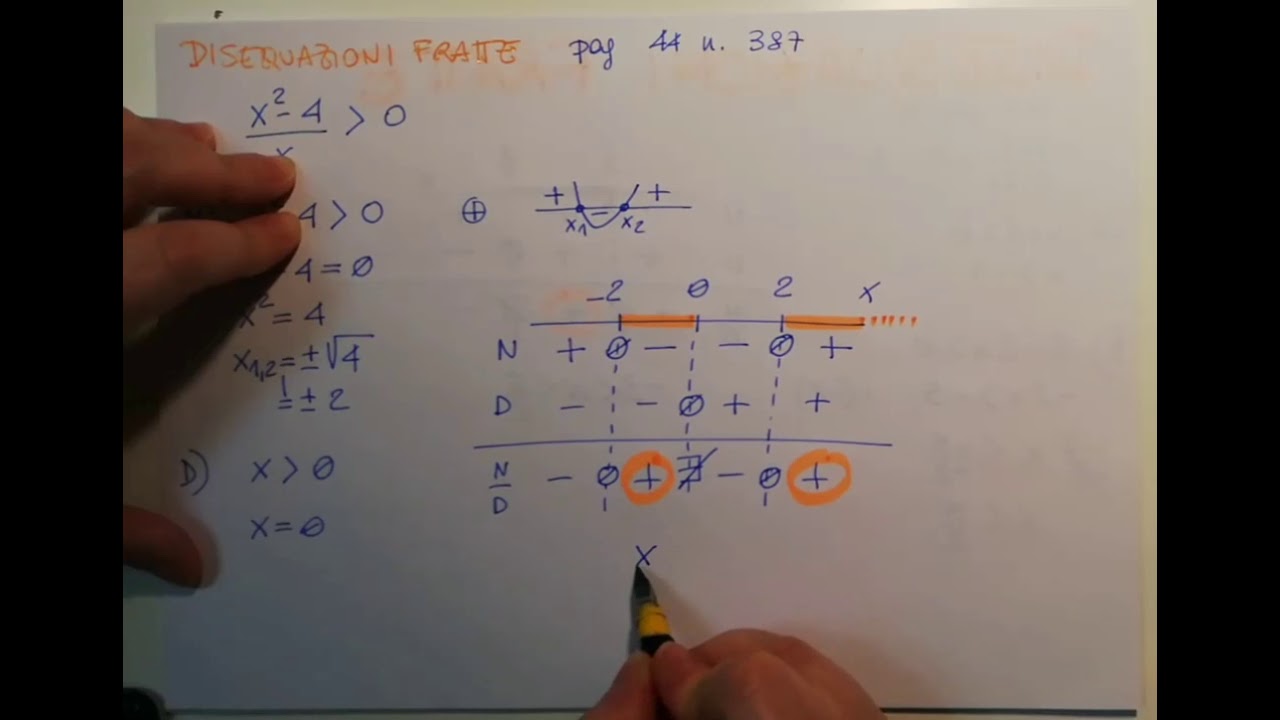 DISEQUAZIONI FRATTE pag 44 n. 387
x² - 4 / x > 0
4 > 0 ⊕ + - +
x₁ x₂
4 = 0
x² = 4
x₁,₂ = ±√4
= ± 2
D) x > 0
x = 0
-2 0 2 x
N + 0 - - 0 +
D - - 0 + +
N/D - 0 + ∄ - 0 +
x